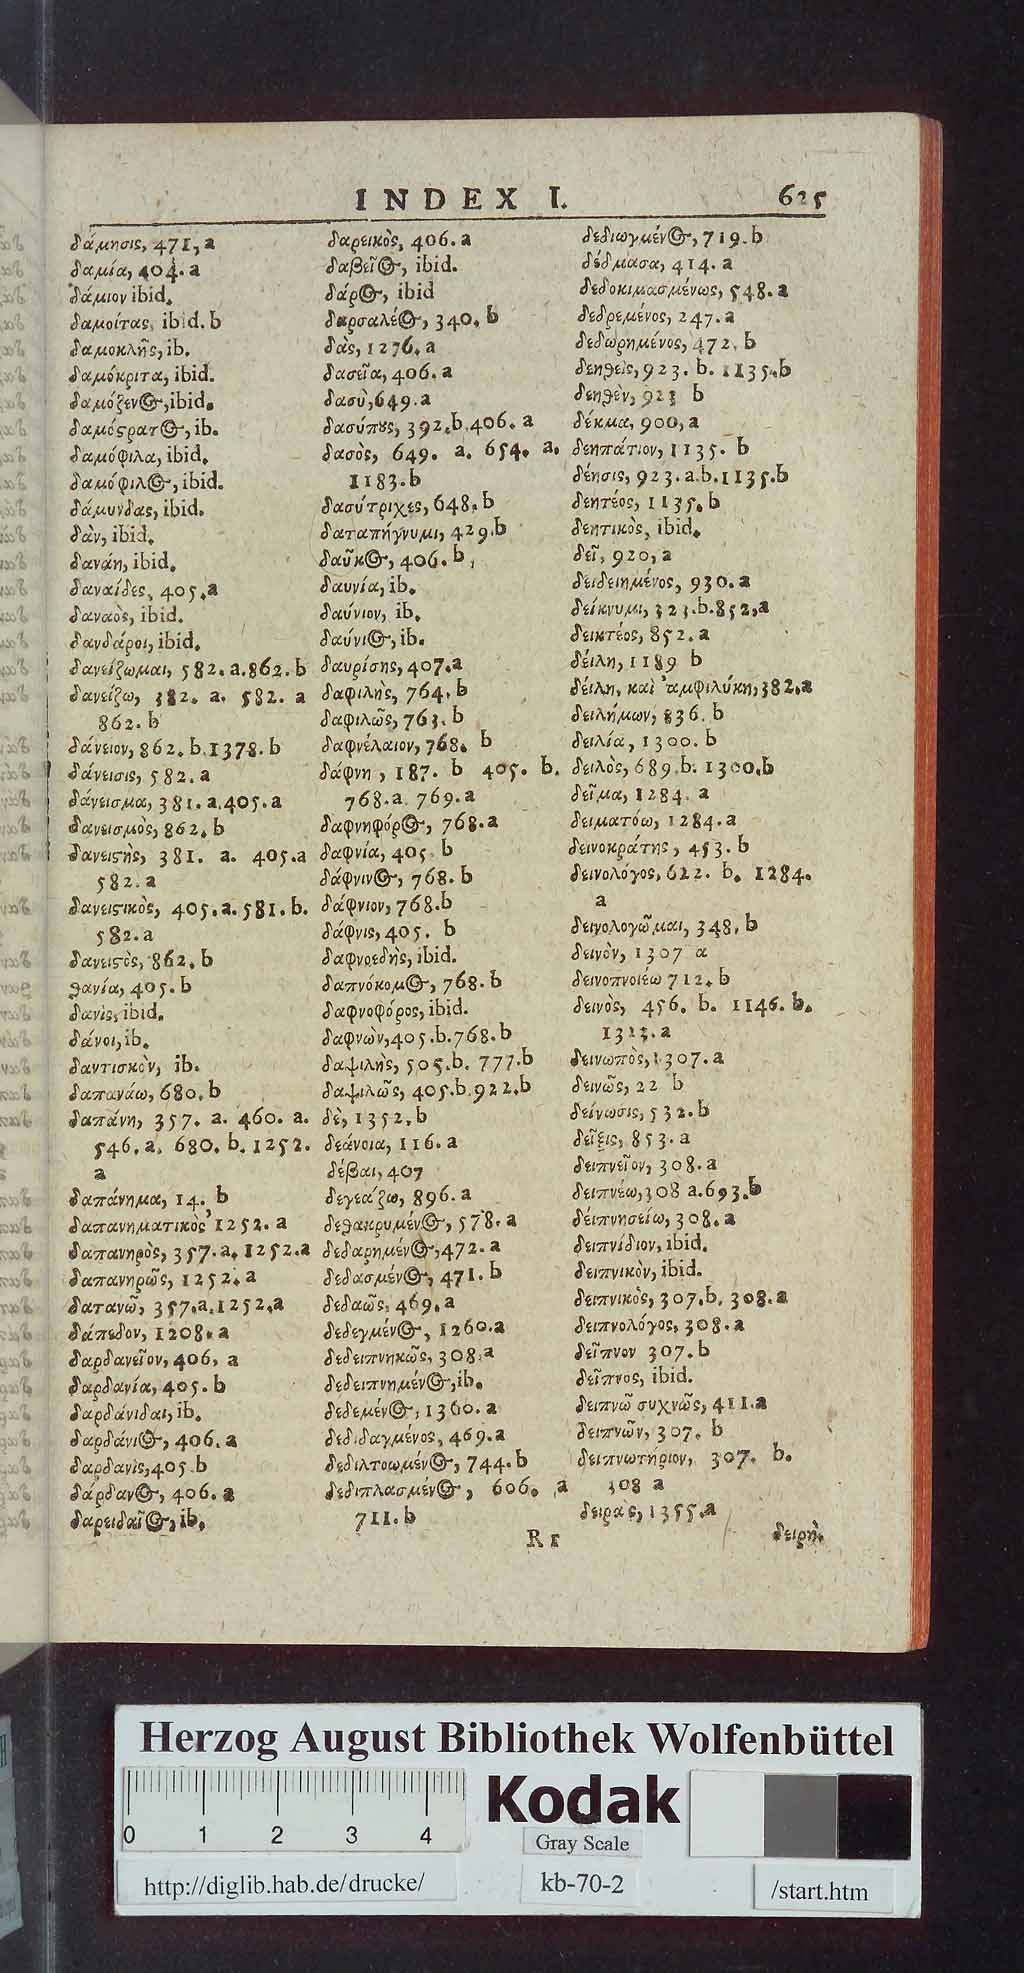 INDEX I. 625
δάμησις, 471, a
δαμία, 404. a
δάμιον ibid.
δαμοίτας, ibid. b
δαμοκλῆς, ib.
δαμόκριτα, ibid.
δαμόξενος, ibid.
δαμόςρατος, ib.
δαμόφιλα, ibid.
δαμόφιλος, ibid.
δάμυνδας, ibid.
δὰν, ibid.
δανάη, ibid.
δαναίδες, 405, a
δαναὸς, ibid.
δανδάροι, ibid.
δανείζωμαι, 582. a. 862. b
δανείζω, 382. a. 582. a
862. b
δάνειον, 862. b. 1378. b
δάνεισις, 582. a
δάνεισμα, 381. a. 405. a
δανεισμὸς, 862. b
δανειςὴς, 381. a. 405. a
582. a
δανειςικὸς, 405. a. 581. b.
582. a
δανειςὸς, 862. b
θανία, 405. b
δανὶς, ibid.
δάνοι, ib.
δαντισκὸν, ib.
δαπανάω, 680. b
δαπάνη, 357. a. 460. a.
546. a. 680. b. 1252.
a
δαπάνημα, 14. b
δαπανηματικὸς 1252. a
δαπανηρὸς, 357. a. 1252. a
δαπανηρῶς, 1252. a
δατανῶ, 357. a. 1252. a
δάπεδον, 1208. a
δαρδανεῖον, 406, a
δαρδανία, 405. b
δαρδάνιδαι, ib.
δαρδάνιος, 406. a
δαρδανὶς, 405. b
δάρδανος, 406. a
δαρειδαῖος, ib.
δαρεικὸς, 406. a
δαβεῖος, ibid.
δάρος, ibid
δαρσαλέος, 340. b
δὰς, 1276. a
δασεῖα, 406. a
δασὺ, 649. a
δασύπȣς, 392. b. 406. a
δασὸς, 649. a. 654. a.
1183. b
δασύτριχες, 648. b
δαταπήγνυμι, 429. b
δαῦκος, 406. b,
δαυνία, ib.
δαύνιον, ib.
δαύνιος, ib.
δαυρίσης, 407. a
δαφιλὴς, 764. b
δαφιλῶς, 763. b
δαφνέλαιον, 768. b
δάφνη, 187. b 405. b.
768. a. 769. a
δαφνηφόρος, 768. a
δαφνία, 405. b
δάφνινος, 768. b
δάφνιον, 768. b
δάφνις, 405. b
δαφνοεδὴς, ibid.
δαπνόκομος, 768. b
δαφνοφόρος, ibid.
δαφνὼν, 405. b. 768. b
δαψιλὴς, 505. b. 777. b
δαψιλῶς, 405. b. 922. b
δὲ, 1352. b
δεάνοια, 116. a
δέβαι, 407
δεγεάζω, 896. a
δεθακρυμένος, 578. a
δεδαρημένος, 472. a
δεδασμένος, 471. b
δεδαῶς, 469. a
δεδεγμένος, 1260. a
δεδειπνηκῶς, 308. a
δεδειπνημένος, ib.
δεδεμένος, 1360. a
δεδιδαγμένος, 469. a
δεδιλτοωμένος, 744. b
δεδιπλασμένος, 606. a
711. b
R r
δεδιωγμένος, 719. b
δέδμασα, 414. a
δεδοκιμασμένως, 548. a
δεδρεμένος, 247. a
δεδωρημένος, 472. b
δεηθεὶς, 923. b. 1135. b
δεηθὲν, 923 b
δέκμα, 900, a
δεηπάτιον, 1135. b
δέησις, 923. a. b. 1135. b
δεητέος, 1135. b
δεητικὸς, ibid.
δεῖ, 920, a
δειδειημένος, 930. a
δείκνυμι, 323. b. 852, a
δεικτέος, 852. a
δείλη, 1189 b
δείλη, καὶ ἀμφιλύκη, 382. a
δειλήμων, 836. b
δειλία, 1300. b
δειλὸς, 689. b. 1300. b
δεῖμα, 1284. a
δειματόω, 1284. a
δεινοκράτης, 453. b
δεινολόγος, 622. b. 1284.
a
δεινολογῶμαι, 348. b
δεινὸν, 1307 a
δεινοπνοιέω 712. b
δεινὸς, 456. b. 1146. b.
1323. a
δεινωπὸς, 1307. a
δεινῶς, 22 b
δείνωσις, 532. b
δεῖξις, 853. a
δειπνεῖον, 308. a
δειπνέω, 308 a. 693. b
δείπνησείω, 308. a
δειπνίδιον, ibid.
δειπνικὸν, ibid.
δειπνικὸς, 307. b. 308. a
δειπνολόγος, 308. a
δεῖπνον 307. b
δεῖπνος, ibid.
δειπνῶ συχνῶς, 411. a
δειπνῶν, 307. b
δειπνωτήριον, 307. b.
308 a
δειρὰς, 1355. a
δειρὴ.
Herzog August Bibliothek Wolfenbüttel
0 1 2 3 4
Kodak
Gray Scale
http://diglib.hab.de/drucke/
kb-70-2
/start.htm